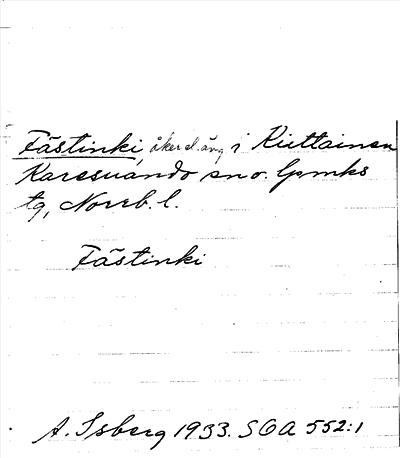 Fästinki, åker el. äng i Kuttainen
Karesuando sn o. lpmks
tg, Norrb. l.
Fästinki
A. Isberg 1933. SOA 552:1